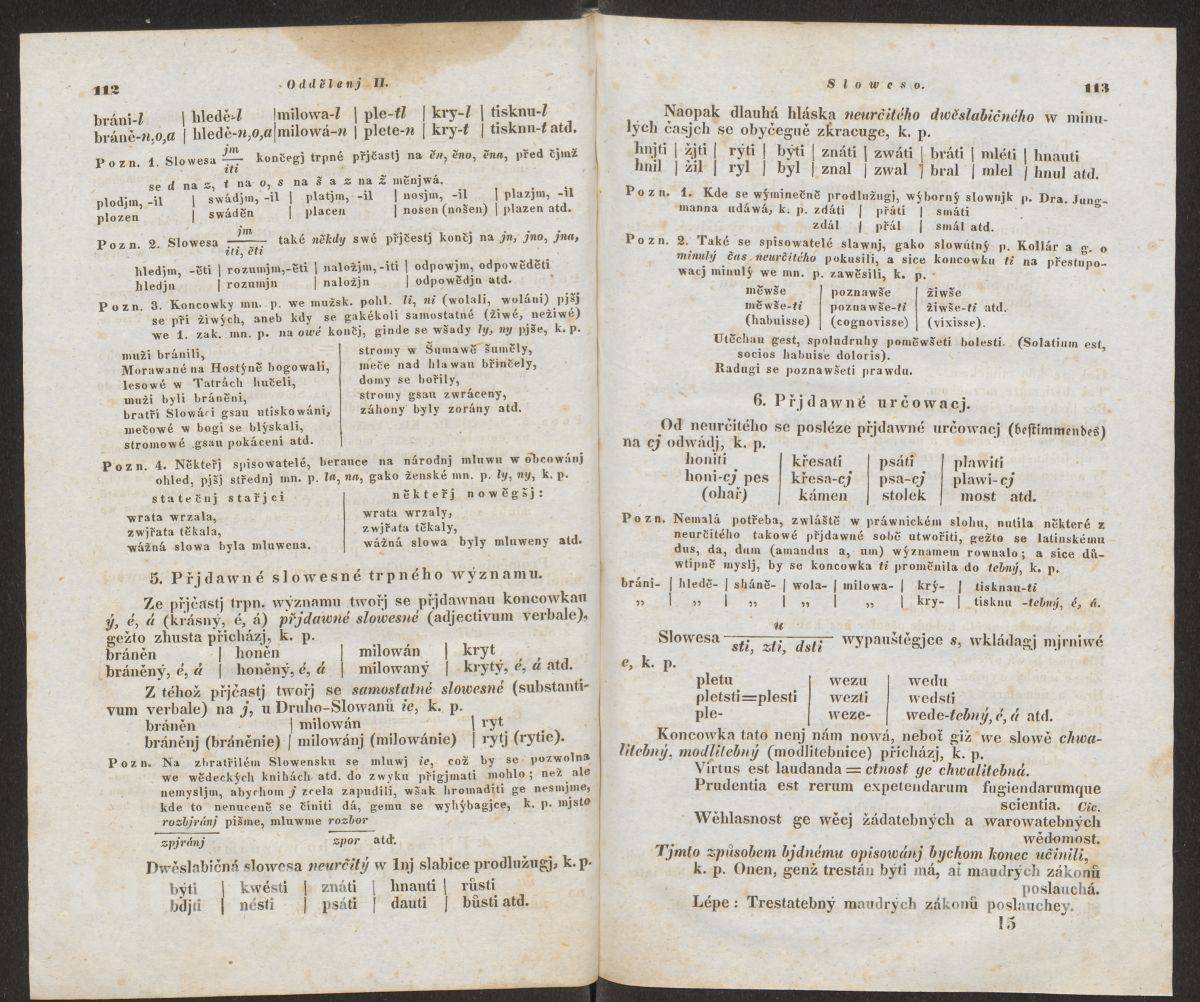 112 Oddělenj II.
bráni-l | hledě-l | milowa-l | ple-tl | kry-l | tisknu-l
bráně-n,o,a | hledě-n,o,a | milowá-n | plete-n | kry-t | tisknu-t atd.
Pozn. 1. Slowesa jm/iti končegj trpné přjčastj na ěn, ěno, ěna, před čjmž
se d na z, t na o, s na š a z na ž měnjwá.
plodjm, -il | swádjm, -il | platjm, -il | nosjm, -il | plazjm, -il
plozen | swáděn | placen | nošen (nošen) | plazen atd.
Pozn. 2. Slowesa jm/iti, ěti také někdy swé přjčestj končj na jn, jno, jna,
hledjm, -ěti | rozumjm,-ěti | naložjm, -iti | odpowjm, odpowěděti
hledjn | rozumjn | naložjn | odpowědjn atd.
Pozn. 3. Koncowky mn. p. we mužsk. pohl. li, ni (wolali, woláni) pjšj
se při žiwých, aneb kdy se gakékoli samostatné (žiwé, nežiwé)
we 1. zak. mn. p. na owé končj, ginde se wšady ly, ny pjše, k. p.
muži bránili,
Morawané na Hostýně bogowali,
lesowé w Tatrách hučeli,
muži byli bráněni,
bratří Slowáci gsau utiskowáni,
mečowé w bogi se blýskali,
stromowé gsau pokáceni atd.
stromy w Šumawě šuměly,
meče nad hlawau břinčely,
domy se bořily,
stromy gsau zwráceny,
záhony byly zorány atd.
Pozn. 4. Někteřj spisowatelé, berauce na národnj mluwu w obcowánj
ohled, pjšj střednj mn. p. la, na, gako ženské mn. p. ly, ny, k. p.
statečnj stařjci
wrata wrzala,
zwjřata těkala,
wážná slowa byla mluwena.
někteřj nowěgšj:
wrata wrzaly,
zwjřata těkaly,
wážná slowa byly mluweny atd.
5. Přjdawné slowesné trpného významu.
Ze přjčastj trpn. významu twořj se přjdawnau koncowkau
ý, é, á (krásný, é, á) přjdawné slowesné (adjectivum verbale),
gežto zhusta přicházj, k. p.
bráněn | honěn | milowán | kryt
bráněný, é, á | honěný, é, á | milowaný | krytý, é, á atd.
Z téhož přjčastj twořj se samostatné slowesné (substanti-
vum verbale) na j, u Druho-Slowanů ie, k. p.
bráněn | milowán | ryt
bráněnj (bráněnie) | milowánj (milowánie) | rytj (rytie).
Pozn. Na zbratřilém Slowensku se mluwj ie, což by se pozwolna
we wědeckých knihách atd. do zwyku přigjmati mohlo; než ale
nemysljm, abychom j zcela zapudili, wšak hromaditi ge nesmjme,
kde to nenuceně se činiti dá, gemu se wyhýbagjce, k. p. mjsto
rozbjránj pišme, mluwme rozbor
zpjránj zpor atd.
Dwěslabičná slowesa neurčitý w 1nj slabice prodlužugj, k. p.
býti | kwésti | znáti | hnauti | růsti
bdjti | nésti | psáti | dauti | bůsti atd.
Sloweso. 113
Naopak dlauhá hláska neurčitého dwěslabičného w minu-
lých časjch se obyčeguě zkracuge, k. p.
hnjti | žjti | rýti | býti | znáti | zwáti | bráti | mléti | hnauti
hnil | žil | ryl | byl | znal | zwal | bral | mlel | hnul atd.
Pozn. 1. Kde se wýminečně prodlužugi, wýborný slownjk p. Dra. Jung-
manna udáwá, k. p. zdáti | přáti | smáti
zdál | přál | smál atd.
Pozn. 2. Také se spisowatelé slawnj, gako slowútný p. Kollár a g. o
minulý čas neurčitého pokusili, a sice koncowku ti na přestupo-
wacj minulý we mn. p. zawěsili, k. p.
měwše | poznawše | žiwše
měwše-ti | poznawše-ti | žiwše-ti atd.
(habuisse) | (cognovisse) | (vixisse).
Utěchau gest, spoludruhy poměwšeti bolesti. (Solatium est,
socios habuise doloris).
Radugi se poznawšeti prawdu.
6. Přjdawné určowacj.
Od neurčitého se posléze přjdawné určowacj (bestimmendes)
na cj odwádj, k. p.
honiti | křesati | psáti | plawiti
honi-cj pes | křesa-cj | psa-cj | plawi-cj
(ohař) | kámen | stolek | most atd.
Pozn. Nemalá potřeba, zwláště w práwnickém slohu, nutila některé z
neurčitého takowé přjdawné sobě utwořiti, gežto se latinskému
dus, da, dum (amandus a, um) wýznamem rownalo; a sice dů-
wtipně myslj, by se koncowka ti proměnila do tebný, k. p.
bráni- | hledě- | sháně- | wola- | milowa- | krý- | tisknau-ti
„ | „ | „ | „ | „ | kry- | tisknu -tebný, é, á.
Slowesa u/sti, zti, dsti wypauštěgjce s, wkládagj mjrniwé
e, k. p.
pletu | wezu | wedu
pletsti=plesti | wezti | wedsti
ple- | weze- | wede-tebný, é, á atd.
Koncowka tato nenj nám nowá, neboť giž we slowě chwa-
litebný, modlitebný (modlitebnice) přicházj, k. p.
Virtus est laudanda = ctnost ge chwalitebná.
Prudentia est rerum expetendarum fugiendarumque
scientia. Cic.
Wěhlasnost ge wěcj žádatebných a warowatebných
wědomost.
Tjmto způsobem bjdnému opisowánj bychom konec učinili,
k. p. Onen, genž trestán býti má, ať maudrých zákonů
poslauchá.
Lépe : Trestatebný maudrých zákonů poslauchey.
15